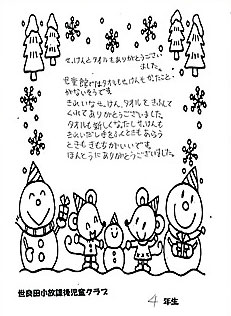 せっけんとタオルもありがとうござい
ました。
児童館ではタオルもせっけんもかったこと
がないそうです
きれいなせっけん、タオルときふして
くれてありがとうございました。
タオルも新しくなったしせっけんも
きれいだし手をふくときもあらう
ときもきもちがいいです
ほんとうにありがとうございました。
世良田小放課後児童クラブ
4年生